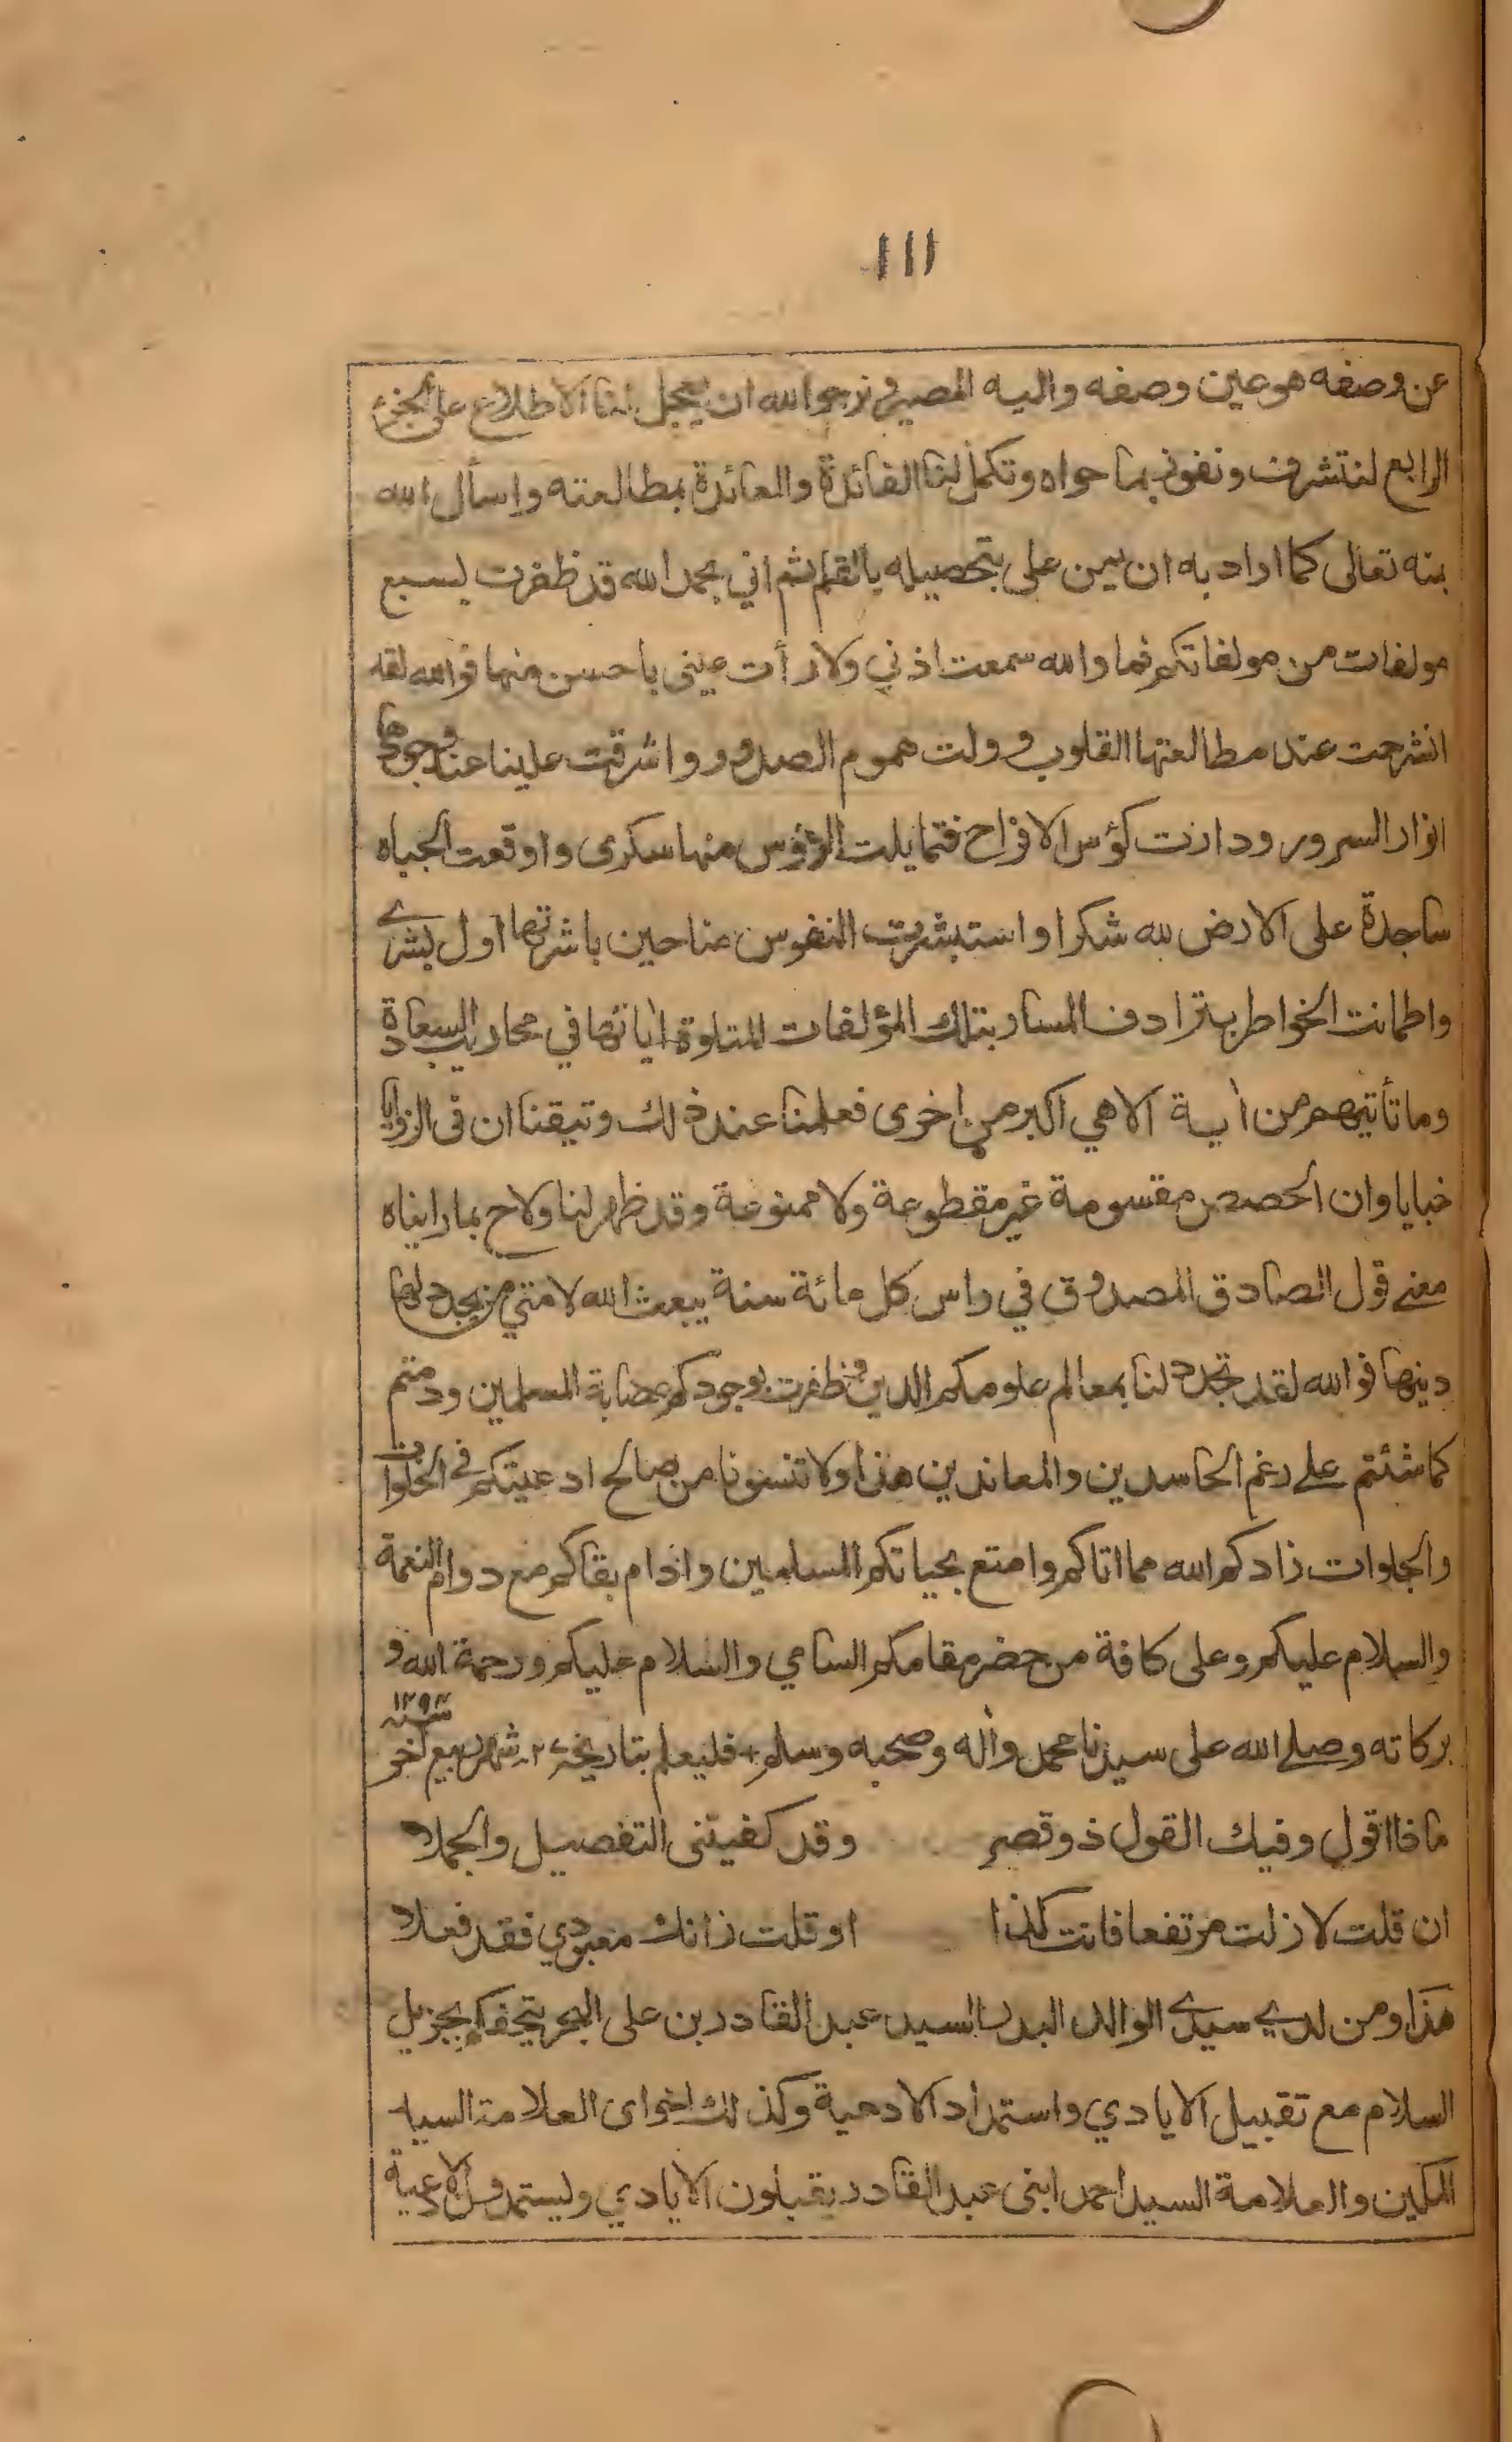 ١١١
عن وصفه هو عين وصفه واليه المصير ونرجو الله ان يعجل لنا الاطلاع على الجزء
الرابع لنتشرف ونفوز بما حواه وتكمل لنا الفائدة والعائدة بمطالعته واسأل الله
بمنه تعالى كما اراد به ان يمن علي بتحصيله بالقلم ثم اني بحمد الله قد ظفرت بسبع
مولفات من مولفاتكم فما والله سمعت اذني ولا رأت عيني باحسن منها فوالله لقد
انشرحت عند مطالعتها القلوب وولت هموم الصدور واشرقت علينا عند وجودها
انوار السرور ودارت كؤس الافراح فتمايلت الرؤس منها سكرى واوقعت الجباه
ساجدة على الارض لله شكرا واستبشرت النفوس منا حين باشرتها اول بشرے
واطمانت الخواطر بترادف المسار بتلك المؤلفات المتلوة اياتها في محاريب السعادة
وما تأتيهم من اية الا هي اكبر من اخرى فعلمنا عند ذلك وتيقنا ان فى الزوايا
خبايا وان الحصص مقسومة غير مقطوعة ولا ممنوعة وقد ظهر لنا ولاح بما رايناه
معنے قول الصادق المصدوق في راس كل مائة سنة يبعث الله لامتي من يجدد لها
دينها فوالله لقد تجدد لنا بمعالم علومكم الدين وظفرت بوجودكم عصابة المسلمين ودمتم
كما شئتم علے رغم الحاسدين والمعاندين هذا ولا تنسونا من صالح ادعيتكم فے الخلوات
والجلوات زادكم الله مما اتاكم وامتع بحياتكم المسلمين وادام بقاكم مع دوام النعمة
والسلام عليكم وعلى كافة من حضر مقامكم السامي والسلام عليكم ورحمة الله و
بركاته وصلے الله على سيدنا محمد واله وصحبه وسلم + فليعلم بتاريخ شهر ربيع اخر سنه
ماذا اقول وفيك القول ذو قصر وقد كفيتنى التفصيل والجملا
ان قلت لا زلت مرتفعا فانت كذا او قلت زانك معبودي فقد فعلا
هذا ومن لدے سيدے الوالد البدل السيد عبد القادر بن على البحر يتحفكم بجزيل
السلام مع تقبيل الايادي واستمداد الادعية وكذلك اخواى العلامة السيد
المكين والعلامة السيد احمد ابنى عبد القادر يقبلون الايادي وليستمدون الادعية